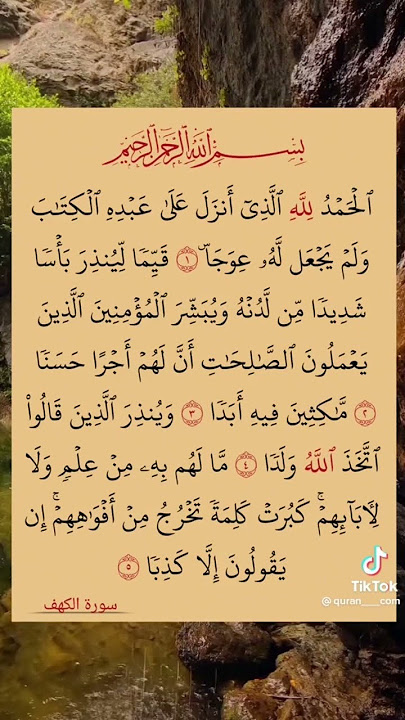 بِسْمِ ٱللَّهِ ٱلرَّحْمَٰنِ ٱلرَّحِيمِ
ٱلْحَمْدُ لِلَّهِ ٱلَّذِىٓ أَنزَلَ عَلَىٰ عَبْدِهِ ٱلْكِتَٰبَ
وَلَمْ يَجْعَل لَّهُۥ عِوَجَاۜ ١ قَيِّمًا لِّيُنذِرَ بَأْسًا
شَدِيدًا مِّن لَّدُنْهُ وَيُبَشِّرَ ٱلْمُؤْمِنِينَ ٱلَّذِينَ
يَعْمَلُونَ ٱلصَّٰلِحَٰتِ أَنَّ لَهُمْ أَجْرًا حَسَنًا
٢ مَّٰكِثِينَ فِيهِ أَبَدًا ٣ وَيُنذِرَ ٱلَّذِينَ قَالُوا۟
ٱتَّخَذَ ٱللَّهُ وَلَدًا ٤ مَّا لَهُم بِهِۦ مِنْ عِلْمٍ وَلَا
لِأٓبَآئِهِمْۚ كَبُرَتْ كَلِمَةً تَخْرُجُ مِنْ أَفْوَٰهِهِمْۚ إِن
يَقُولُونَ إِلَّا كَذِبًا ٥
سورة الكهف
TikTok
@quran___com